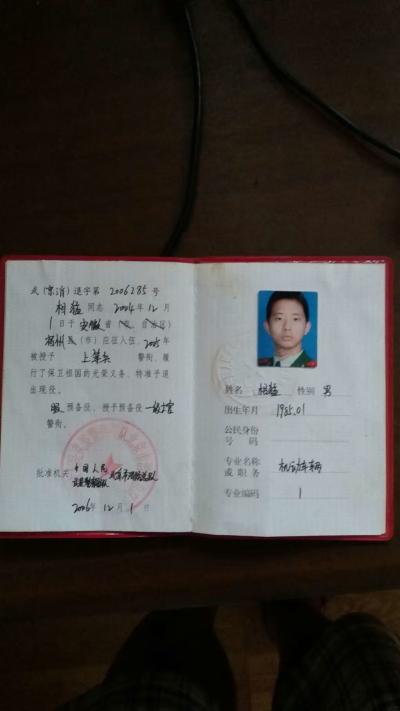 武(京消)退字第 2006285 号
同志 2004 年 12 月
1 日于 安徽 省(市、自治区)
宿州 县(市)应征入伍,2005 年
被授予 上等兵 警衔,履
行了保卫祖国的光荣义务,特准予退
出现役。
服 预备役,授予预备役
警衔。
批准机关 中国人民
武装警察部队 北京市消防总队
2006 年 12 月 1 日
姓名 猛 性别 男
出生年月 1985.01
公民身份
号 码
专业名称
或 职 务 机动车辆
专业编码 1